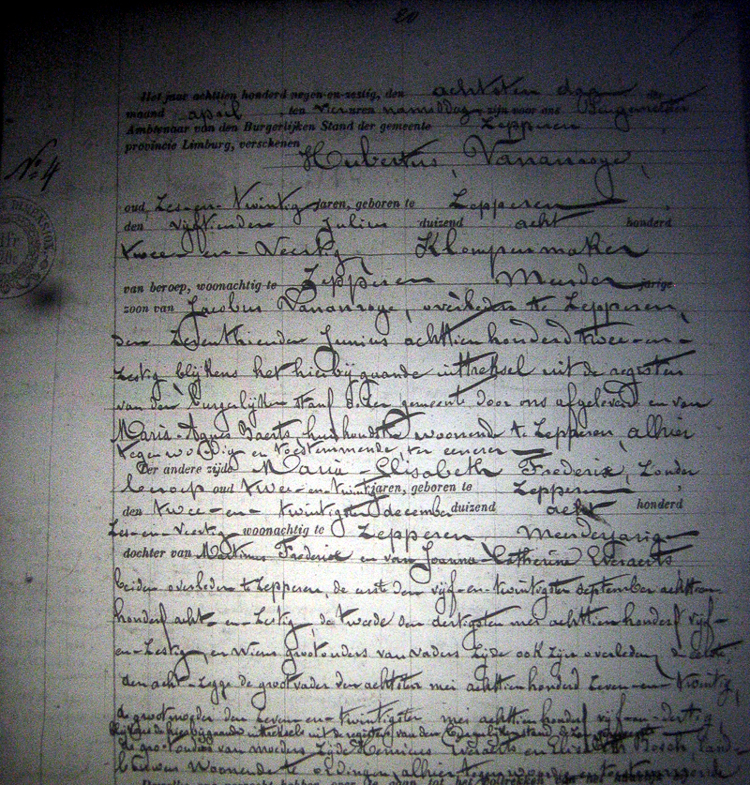 20
Het jaar achttien honderd negen-en-zestig, den achtsten dag der
maand april, ten vier uren namiddag zijn voor ons Burgemeester
Ambtenaar van den Burgerlijken Stand der gemeente Zepperen
provincie Limburg, verschenen
Hubertus Vananroye,
N° 4
oud Zes-en-twintig jaren, geboren te Zepperen
den vijftienden Julius duizend acht honderd
twee-en-Veertig Klompenmaker
van beroep, woonachtig te Zepperen Meerder jarige
zoon van Jacobus Vananroye, overleden te Zepperen,
den Zeventhienden Junius achttien honderd twee-en-
Zestig blijkens het hierbijgaande uittreksel uit de registers
van den burgerlijken stand dezer gemeente door ons afgeleverd en van
Maria-Agnes Baerts huishoudster woonende te Zepperen, alhier
tegenwoordig en toestemmende, ter eenere
Ter andere zijde Maria-Elisabeth Frederix, Zonder
beroep oud twee-en-twintig jaren, geboren te Zepperen
den twee-en-twintigsten december duizend acht honderd
Zes-en-Veertig woonachtig te Zepperen, Meerderjarige
dochter van Martinus Frederix en van Joanna-Catherina Everaerts
beiden overleden te Zepperen, de eerste den vijf-en-twintigsten september achttien
honderd acht-en-Zestig, de tweede den dertigsten mei achttien honderd vijf-
en-Zestig, en wiens grootouders van vaders Zijde ook zijn overleden, de eerste,
den acht-Zegge de grootvader den achtsten mei achttien honderd Zeven-en-twintig,
de grootmoeder den Zeven-en-twintigsten mei achttien honderd vijf-en-dertig
blijkens de hierbijgaande uittreksels uit de registers van den burgerlijken stand
de grootouders van moeders Zijde Henricus Everaerts en Elisabeth Bosch, land-
bouwers woonende te ordingen, alhier tegenwoordig en toestemmende